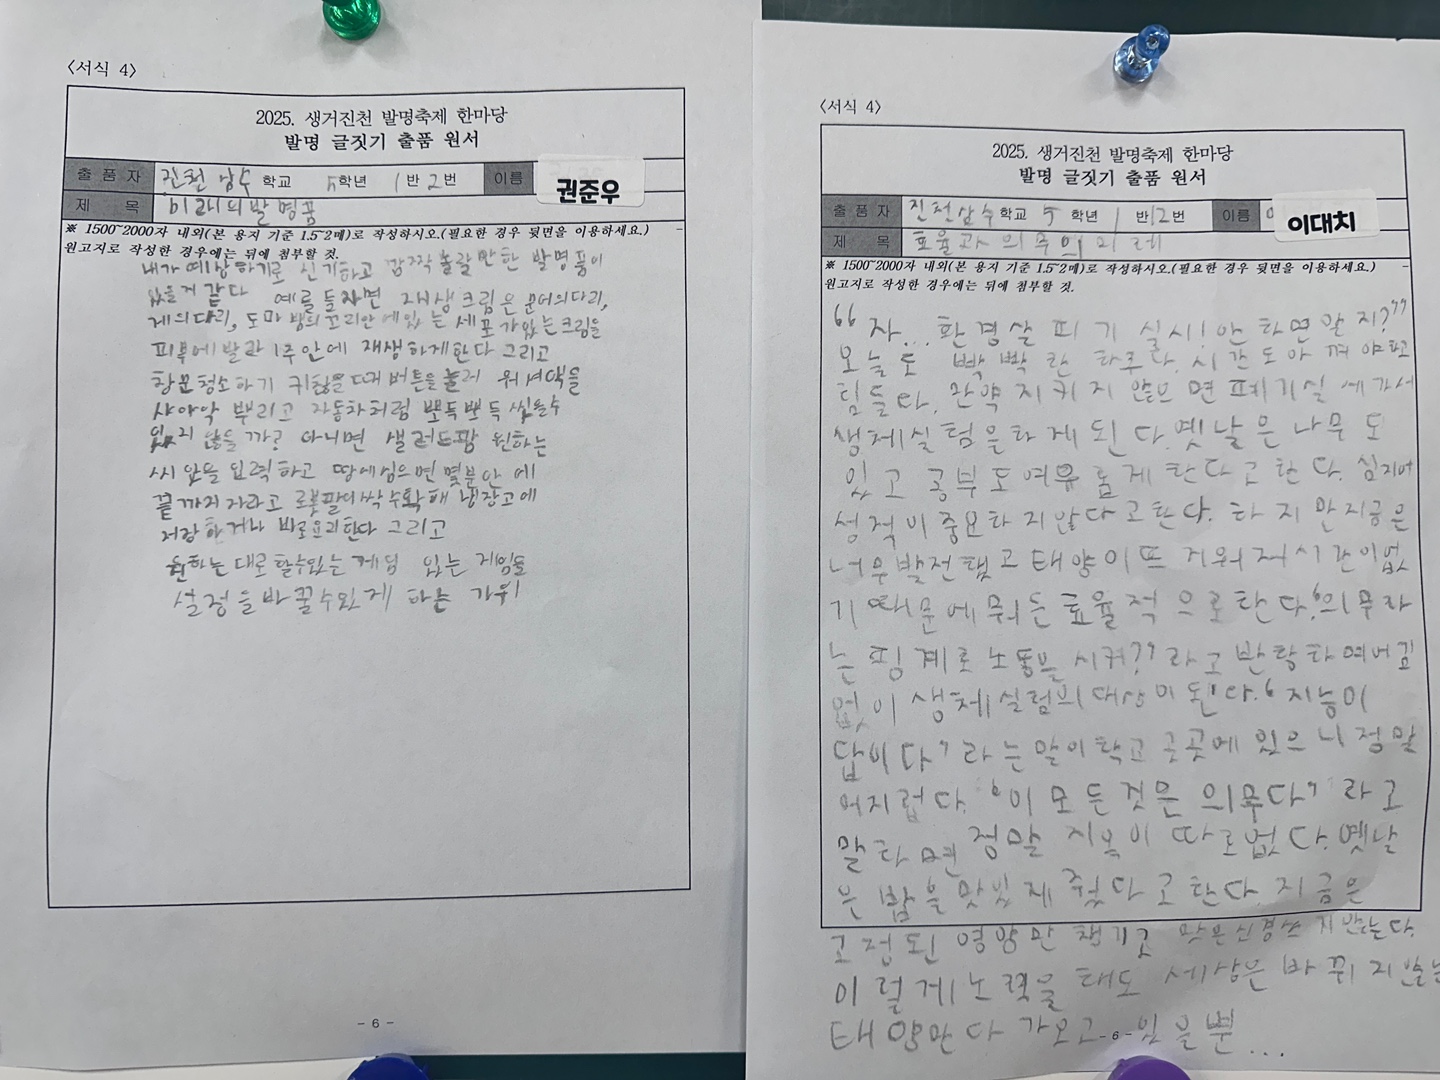 <서식 4>
2025. 생거진천 발명축제 한마당
발명 글짓기 출품 원서
출 품 자 진천 상수 학교 5학년 1반 2번 이름 권준우
제 목 미래의 발명품
※ 1500~2000자 내외(본 용지 기준 1.5~2매)로 작성하시오.(필요한 경우 뒷면을 이용하세요.)
원고지로 작성한 경우에는 뒤에 첨부할 것.
내가 예상하기로 신기하고 깜짝 놀랄만한 발명품이
있을거 같다 예를 들자면 재생크림은 문어의다리,
게의다리, 도마뱀의꼬리안에있는 세포가있는크림을
피부에 발라 1주안에 재생하게한다 그리고
창문청소하기 귀찮을때 버튼을 눌러 워셔액을
샤아악 뿌리고 자동차처럼 뽀득뽀득 씻을수
있지 않을 까? 아니면 샐러드팜 원하는
씨앗을 입력하고 땅에심으면 몇분안에
끝까지자라고 로봇팔이싹 수확해 냉장고에
저장하거나 바로요리한다 그리고
원하는 대로할수있는게임 있는 게임을
설정을바꿀수있게 하는 가위
- 6 -
<서식 4>
2025. 생거진천 발명축제 한마당
발명 글짓기 출품 원서
출 품 자 진천상수학교 5 학년 1 반12번 이름 이대치
제 목 효율과 의무의 미래
※ 1500~2000자 내외(본 용지 기준 1.5~2매)로 작성하시오.(필요한 경우 뒷면을 이용하세요.)
원고지로 작성한 경우에는 뒤에 첨부할 것.
“자... 환경살피기 실시! 안하면알지?”
오늘도 빡빡한 하루다. 시간도아껴야하고
힘들다. 만약 지키지 않으면 폐기실에가서
생체실험을하게된다. 옛날은 나무도
있고 공부도여유롭게한다고한다. 심지어
성적이중요하지않다고한다. 하지만지금은
너무발전했고 태양이뜨거워져시간이없
기때문에뭐든효율적으로한다.‘의무라
는핑계로노동을시켜?’라고반항하여
없이 생체실험의대상이된다.‘지능이
답이다’라는말이학교곳곳에있으니정말
어지럽다.‘이모든것은 의무다’라고
말하면 정말 지옥이따로없다.옛날
은 밥을맛있게줬다고한다.지금은
고정된 영양만챙기고 맛은신경쓰지않는다.
이렇게노력을해도 세상은 바뀌지않는
태양만다가오고 있을뿐...
- 6 -